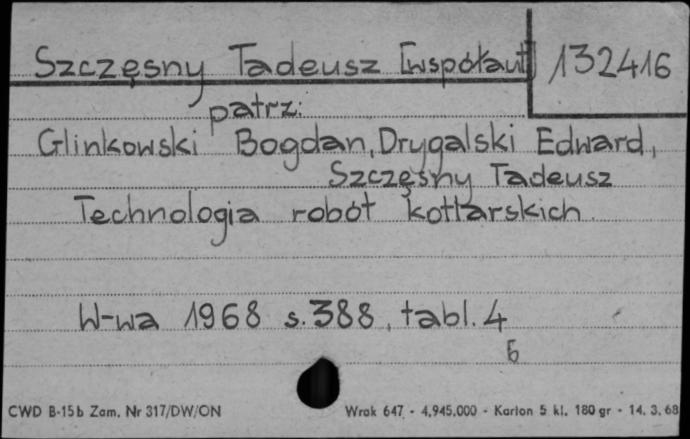 Szczęsny Tadeusz [współaut] 132416
patrz:
Glinkowski Bogdan, Drygalski Edward,
Szczęsny Tadeusz
Technologia robót kotlarskich.
W-wa 1968 s. 388, tabl. 4
6
CWD B-15b Zam. Nr 317/DW/ON Wrak 647 - 4,945.000 - Karton 5 kl. 180 gr - 14. 3. 68